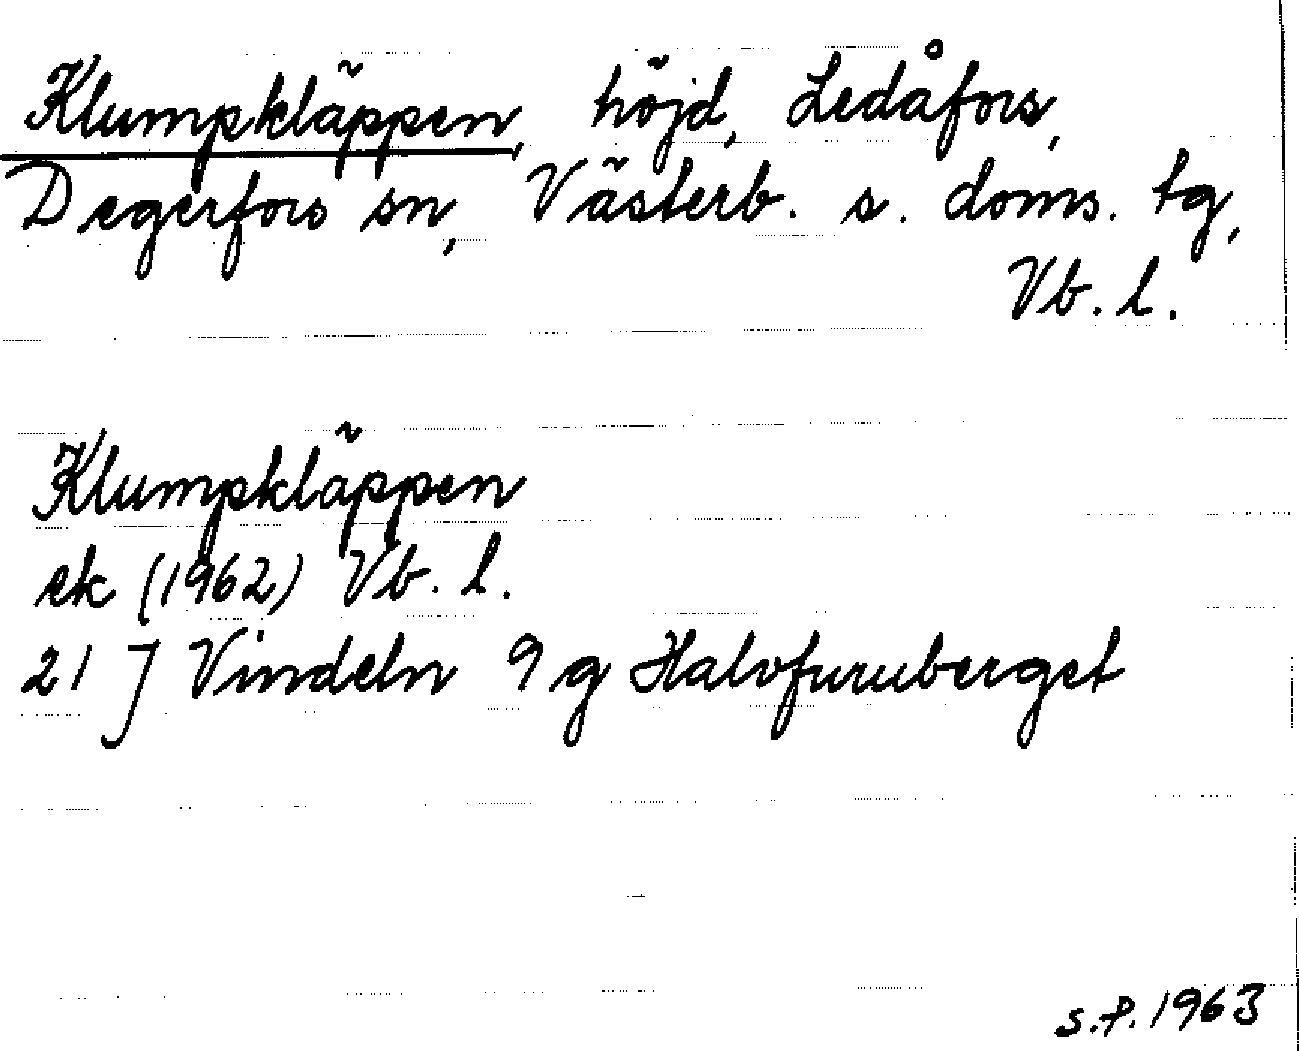 Klumpkläppen, höjd, Ledåfors,
Degerfors sn, Västerb. s. doms. tg,
Vb. l.
Klumpkläppen
ek (1962) Vb. l.
21 J Vindeln 9 g Halvfuruberget
s.f. 1963